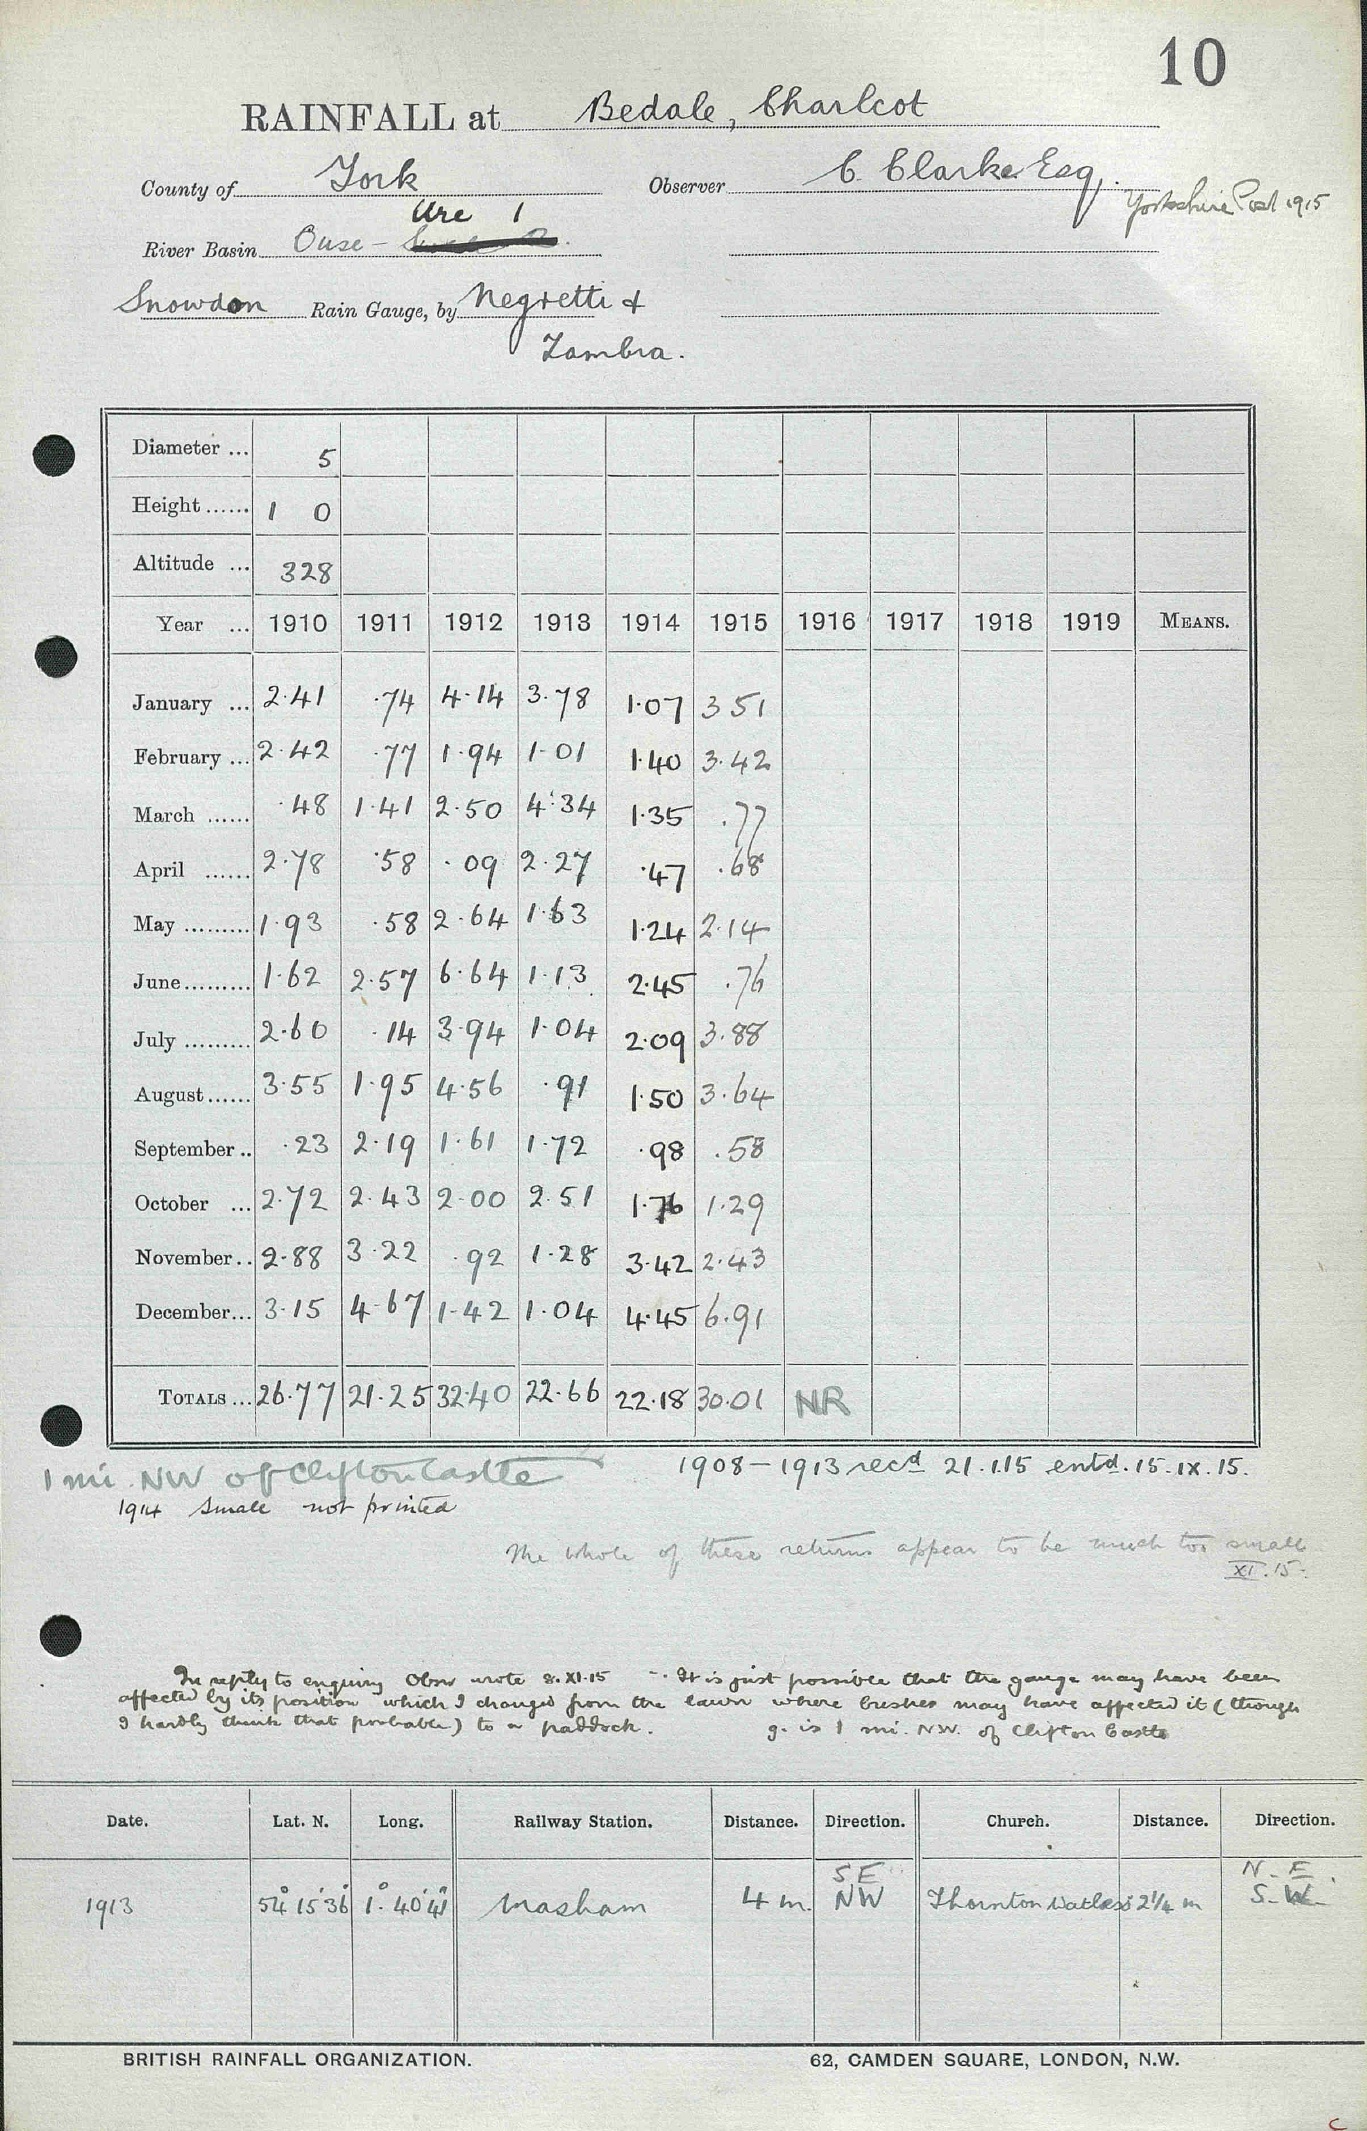 10
RAINFALL at Bedale, Charlcot
County of York Observer C. Clarke Esq. Yorkshire Post 1915
Ure 1
River Basin Ouse -
Snowdon Rain Gauge, by Negretti &
Zambra.
Diameter ... 5
Height ...... 1 0
Altitude ... 328
Year ... 1910 1911 1912 1913 1914 1915 1916 1917 1918 1919 MEANS.
January ... 2.41 .74 4.14 3.78 1.07 3 51
February ... 2.42 .77 1.94 1.01 1.40 3.42
March ...... .48 1.41 2.50 4.34 1.35 .77
April ...... 2.78 .58 .09 2.27 .47 .68
May ......... 1.93 .58 2.64 1.63 1.24 2.14
June ......... 1.62 2.57 6.64 1.13 2.45 .76
July ......... 2.60 .14 3.94 1.04 2.09 3.88
August ...... 3.55 1.95 4.56 .91 1.50 3.64
September .. .23 2.19 1.61 1.72 .98 .58
October ... 2.72 2.43 2.00 2.51 1.76 1.29
November .. 2.88 3.22 .92 1.28 3.42 2.43
December ... 3.15 4.67 1.42 1.04 4.45 6.91
TOTALS ... 26.77 21.25 32.40 22.66 22.18 30.01 NR
1 mi NW of Clifton Castle 1908 - 1913 recd 21.1.15 entd. 15.IX.15.
1914 Small not printed
The whole of these returns appear to be much too small
XI.15.
In reply to enquiry Obsr wrote 8.XI.15 - It is just possible that the gauge may have been
affected by its position which I changed from the lawn where bushes may have affected it (though
I hardly think that probable) to a paddock. g. is 1 mi. NW. of Clifton Castle
Date. Lat. N. Long. Railway Station. Distance. Direction. Church. Distance. Direction.
SE N-E.
1913 54° 15' 36" 1° 40' 41" Masham 4 m. NW Thornton Watlass 2¼ m S-W
BRITISH RAINFALL ORGANIZATION. 62, CAMDEN SQUARE, LONDON, N.W.
C